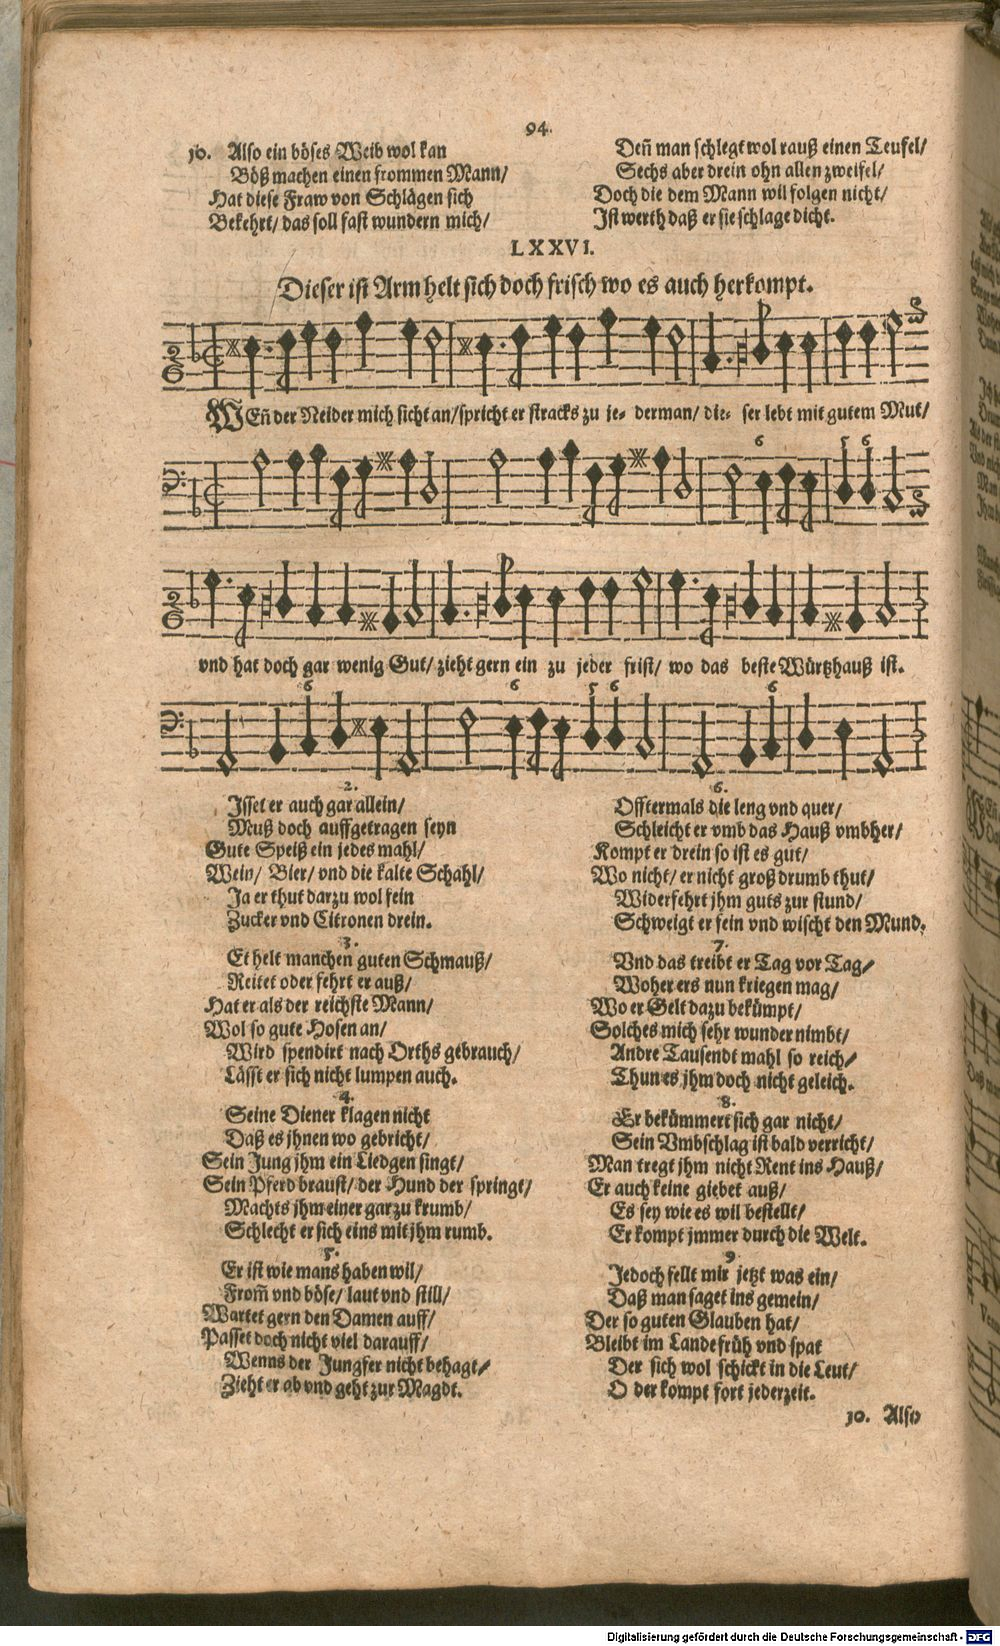 94.
10. Also ein böses Weib wol kan
Böß machen einen frommen Mann/
Hat diese Fraw von Schlägen sich
Bekehrt/ das soll fast wundern mich/
Deñ man schlegt wol rauß einen Teufel/
Sechs aber drein ohn allen zweifel/
Doch die dem Mann wil folgen nicht/
Ist werth daß er sie schlage dicht.
LXXVI.
Dieser ist Arm helt sich doch frisch wo es auch herkompt.
WEñ der Neider mich sicht an/ spricht er stracks zu je- derman/ die- ser lebt mit gutem Mut/
6 5 6
vnd hat doch gar wenig Gut/ zieht gern ein zu jeder frist/ wo das beste Würtzhauß ist.
6 6 5 6 6
2.
Isset er auch gar allein/
Muß doch auffgetragen seyn
Gute Speiß ein jedes mahl/
Wein/ Bier/ vnd die kalte Schahl/
Ja er thut darzu wol fein
Zucker vnd Citronen drein.
3.
Er helt manchen guten Schmauß/
Reitet oder fehrt er auß/
Hat er als der reichste Mann/
Wol so gute Hosen an/
Wird spendirt nach Orths gebrauch/
Lässt er sich nicht lumpen auch.
4.
Seine Diener klagen nicht
Daß es jhnen wo gebricht/
Sein Jung jhm ein Liedgen singt/
Sein Pferd braust/ der Hund der springt/
Machts jhm einer gar zu krumb/
Schlecht er sich eins mit jhm rumb.
5.
Er ist wie mans haben wil/
From̃ vnd böse/ laut vnd still/
Wartet gern den Damen auff/
Passet doch nicht viel darauff/
Wenns der Jungfer nicht behagt/
Zieht er ab vnd geht zur Magdt.
6.
Offtermals die leng vnd quer/
Schleicht er vmb das Hauß vmbher/
Kompt er drein so ist es gut/
Wo nicht/ er nicht groß drumb thut/
Widerfehrt jhm guts zur stund/
Schweigt er fein vnd wischt den Mund.
7.
Vnd das treibt er Tag vor Tag/
Woher ers nun kriegen mag/
Wo er Gelt dazu bekümpt/
Solches mich sehr wunder nimbt/
Andre Tausendt mahl so reich/
Thun es jhm doch nicht geleich.
8.
Er bekümmert sich gar nicht/
Sein Vmbschlag ist bald verricht/
Man tregt jhm nicht Rent ins Hauß/
Er auch keine giebet auß/
Es sey wie es wil bestellt/
Er kompt jmmer durch die Welt.
9.
Jedoch fellt mir jetzt was ein/
Daß man saget ins gemein/
Der so guten Glauben hat/
Bleibt im Lande früh vnd spat
Der sich wol schickt in die Leut/
O der kompt fort jederzeit.
10. Also
Digitalisierung gefördert durch die Deutsche Forschungsgemeinschaft - DFG